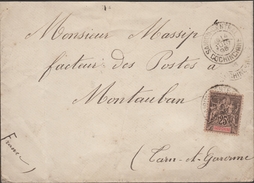 Monsieur Massip
facteur des Postes à
Montauban
(Tarn-et-Garonne
France
25